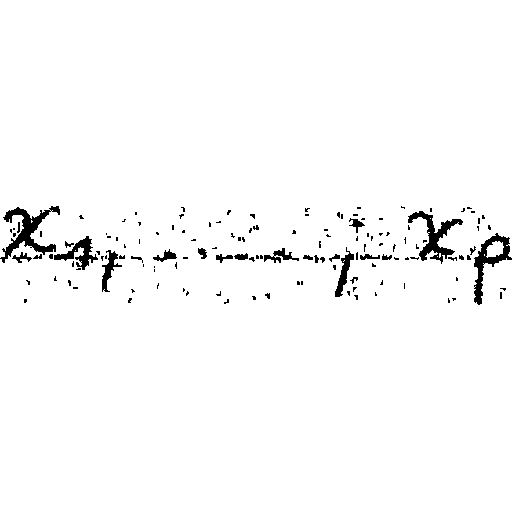 x₁, . . . , xₚ